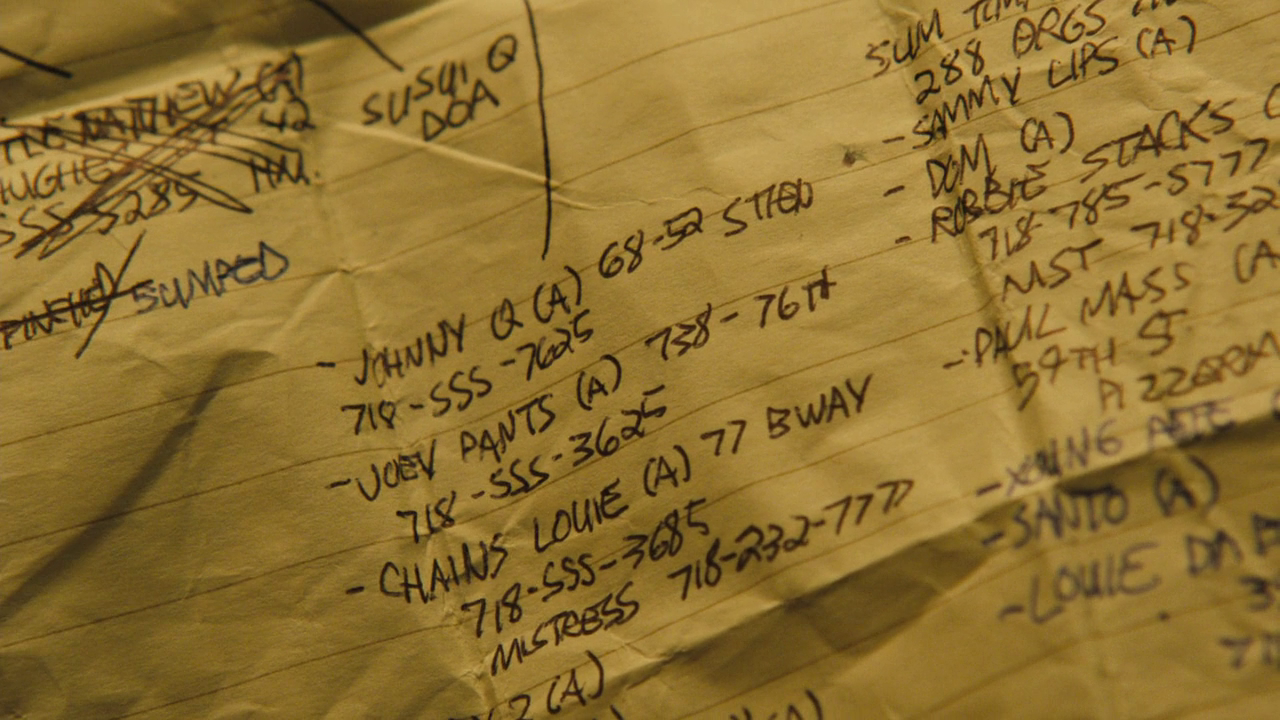 42
HUGHE
555-5289
SUSUI Q
DOA
SUMPED
- JOHNNY Q (A) 68-52
718-555-7625
- JOEY PANTS (A) 738-76TH
718-555-3625
- CHAINS LOUIE (A) 77 BWAY
718-555-3685
MISTRESS 718-232-7777
2 (A)
(A)
SUM
288 DRGS
- SAMMY LIPS (A)
- DOM (A)
- ROBBIE STACKS
718-785-5777
MST 718-32
- PAUL MASS (A
54TH ST
- YOUNG PETE
- SANTO (A)
- LOUIE DA B